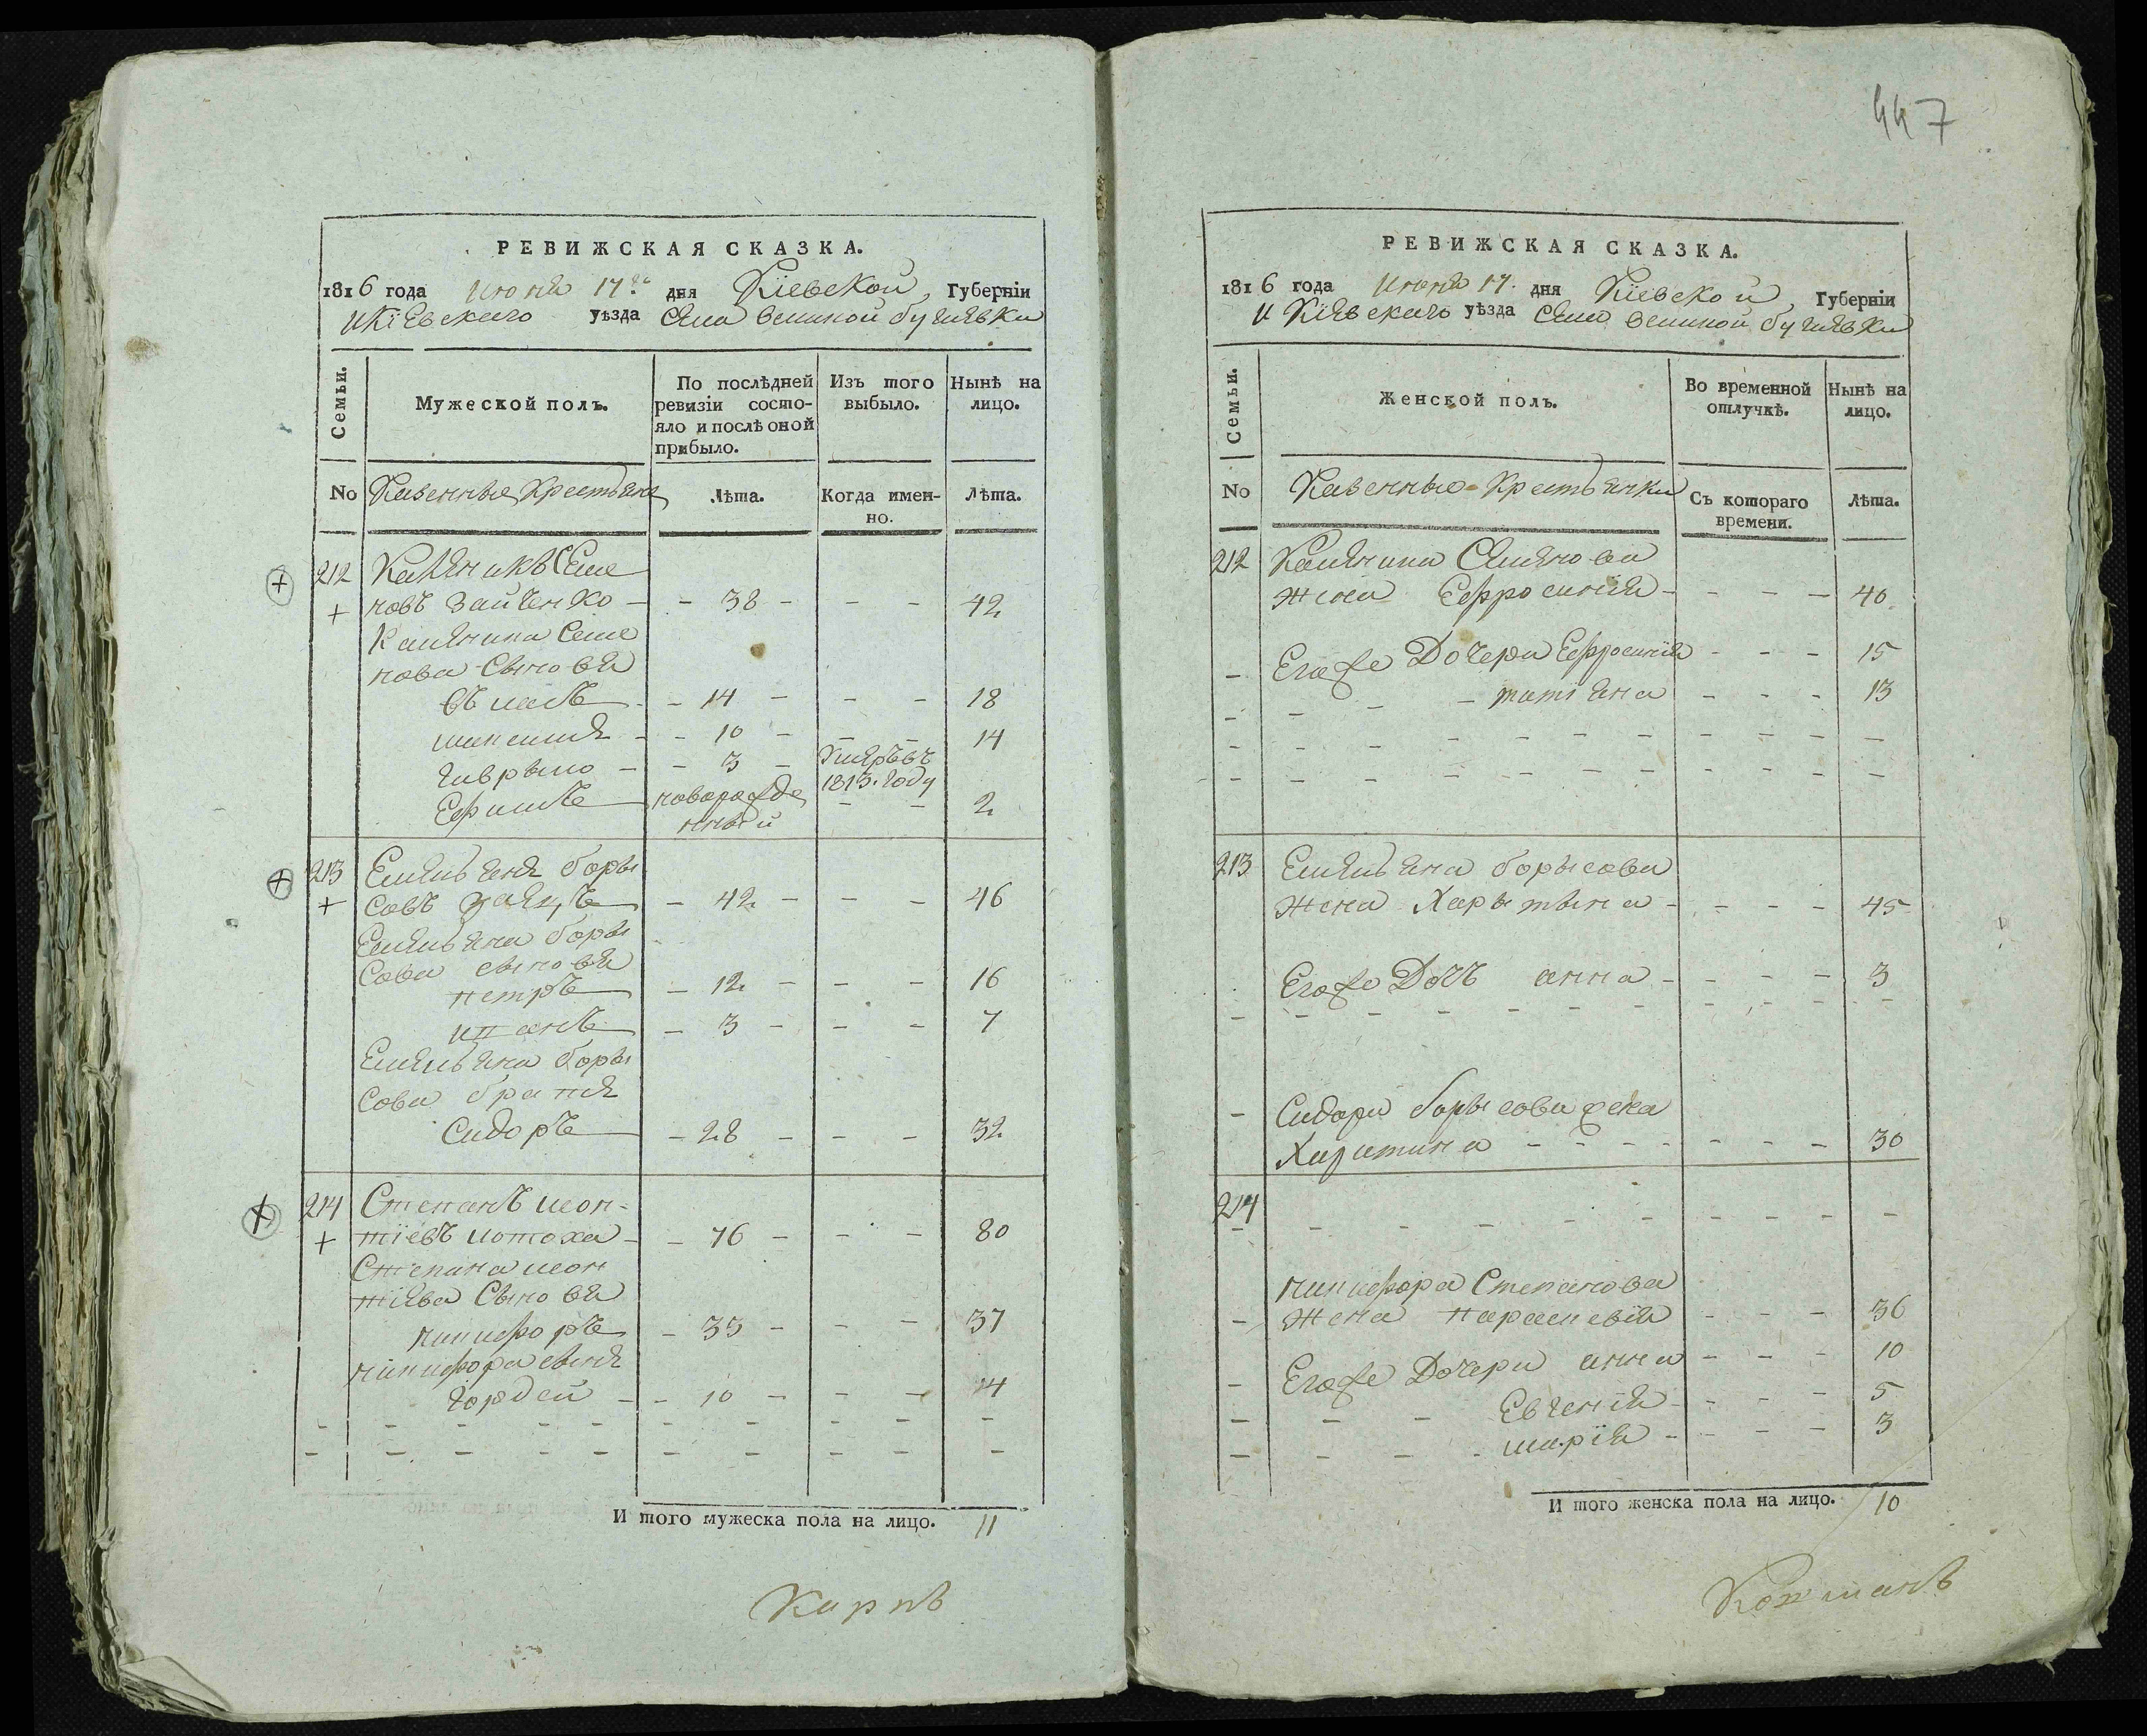 447
РЕВИЖСКАЯ СКАЗКА.
1816 года Июня 17го дня Кіевской, Губерніи
И Кіевскаго уѣзда Села великой бугаевки
Семьи.
Мужеской полъ.
По послѣдней ревизіи состо-
яло и послѣ оной
прибыло.
Изъ того
выбыло.
Нынѣ на
лицо.
No Казенные Крестьяне
Лѣта.
Когда имен-
но.
Лѣта.
212 Каленикъ Семе
новъ Зайченко - 38 - - - 42
Каленика Семе
нова Сыновья
- 14 - - - 18
- 10 - - - 14
Гаврыло - 3 - Умеръ въ
1813. году
Ефимъ новорожде
нный - - 2
213 Емельянъ боры
совъ Заяцъ - 42 - - - 46
Емельяна боры
сова сыновья
петръ - 12 - - - 16
- 3 - - - 7
Емельяна боры
сова братья
Сидоръ - 28 - - - 32
214 Степанъ леон-
тіевъ лотоха - 76 - - - 80
Степана леон
тіева Сыновья
никифоръ - 33 - - - 37
никифора сынъ
гордей - 10 - - - 14
И того мужеска пола на лицо. 11
Карпъ
РЕВИЖСКАЯ СКАЗКА.
1816 года Июня 17. дня Кіевской, Губерніи
И Кіевскаго уѣзда Села великой бугаевки
Семьи.
Женской полъ.
Во временной
отлучкѣ.
Нынѣ на
лицо.
No Казенные Крестьянки
Съ котораго
времени.
Лѣта.
212 Каленика Семенова
жена Ефросинія - - - - 40
Егоже Дочери Ефросинія - - - 15
татіяна - - - 13
213 Емельяна борысова
жена Харытына - - - - 45
Егоже Дочь анна - - - - 3
Сидора борысова жена
Харитина - - - - - - - 30
214
никифора Степанова
жена параскевія - - - 36
Егоже Дочери анна - - - 10
Евгенія - - - 5
марія - - - - 3
И того женска пола на лицо. 10